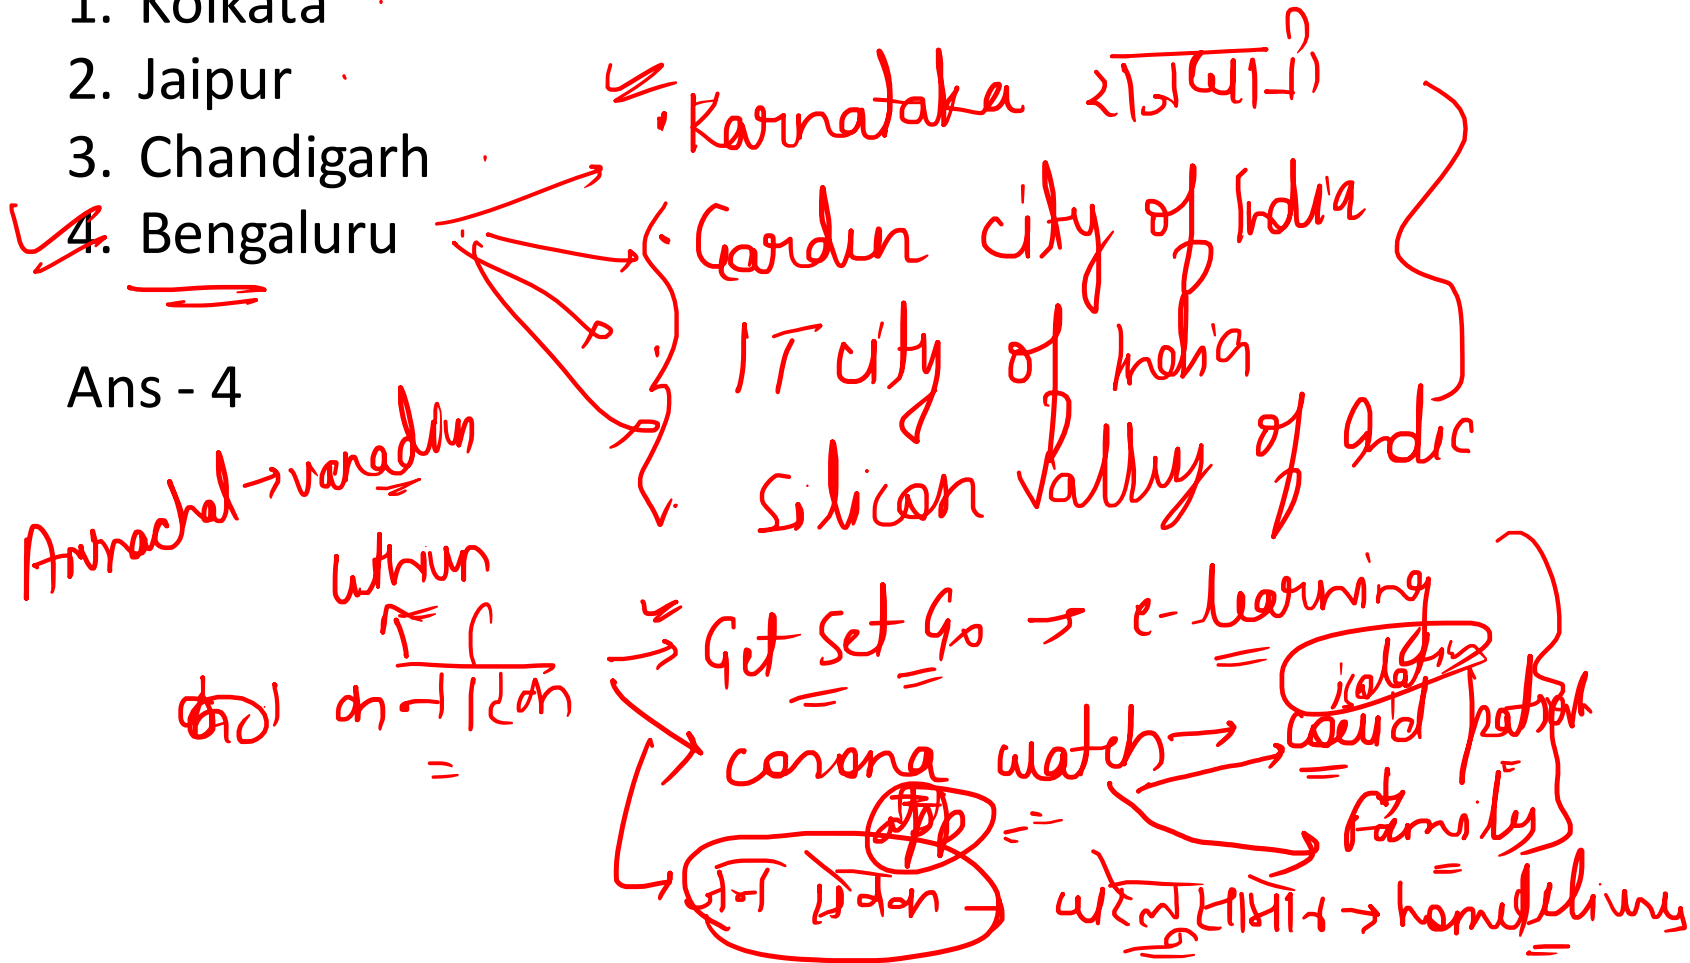 1. Kolkata
2. Jaipur
3. Chandigarh
4. Bengaluru
Ans - 4
Karnataka राजधानी
Garden city of India
IT city of India
Silicon Valley of India
Arunachal → vanadium
Lithium
कर्नाटक
Get Set Go → e-learning
isolation
corona watch → covid patient
app
Family
जन सेवक → घरेलू सामान → home delivery